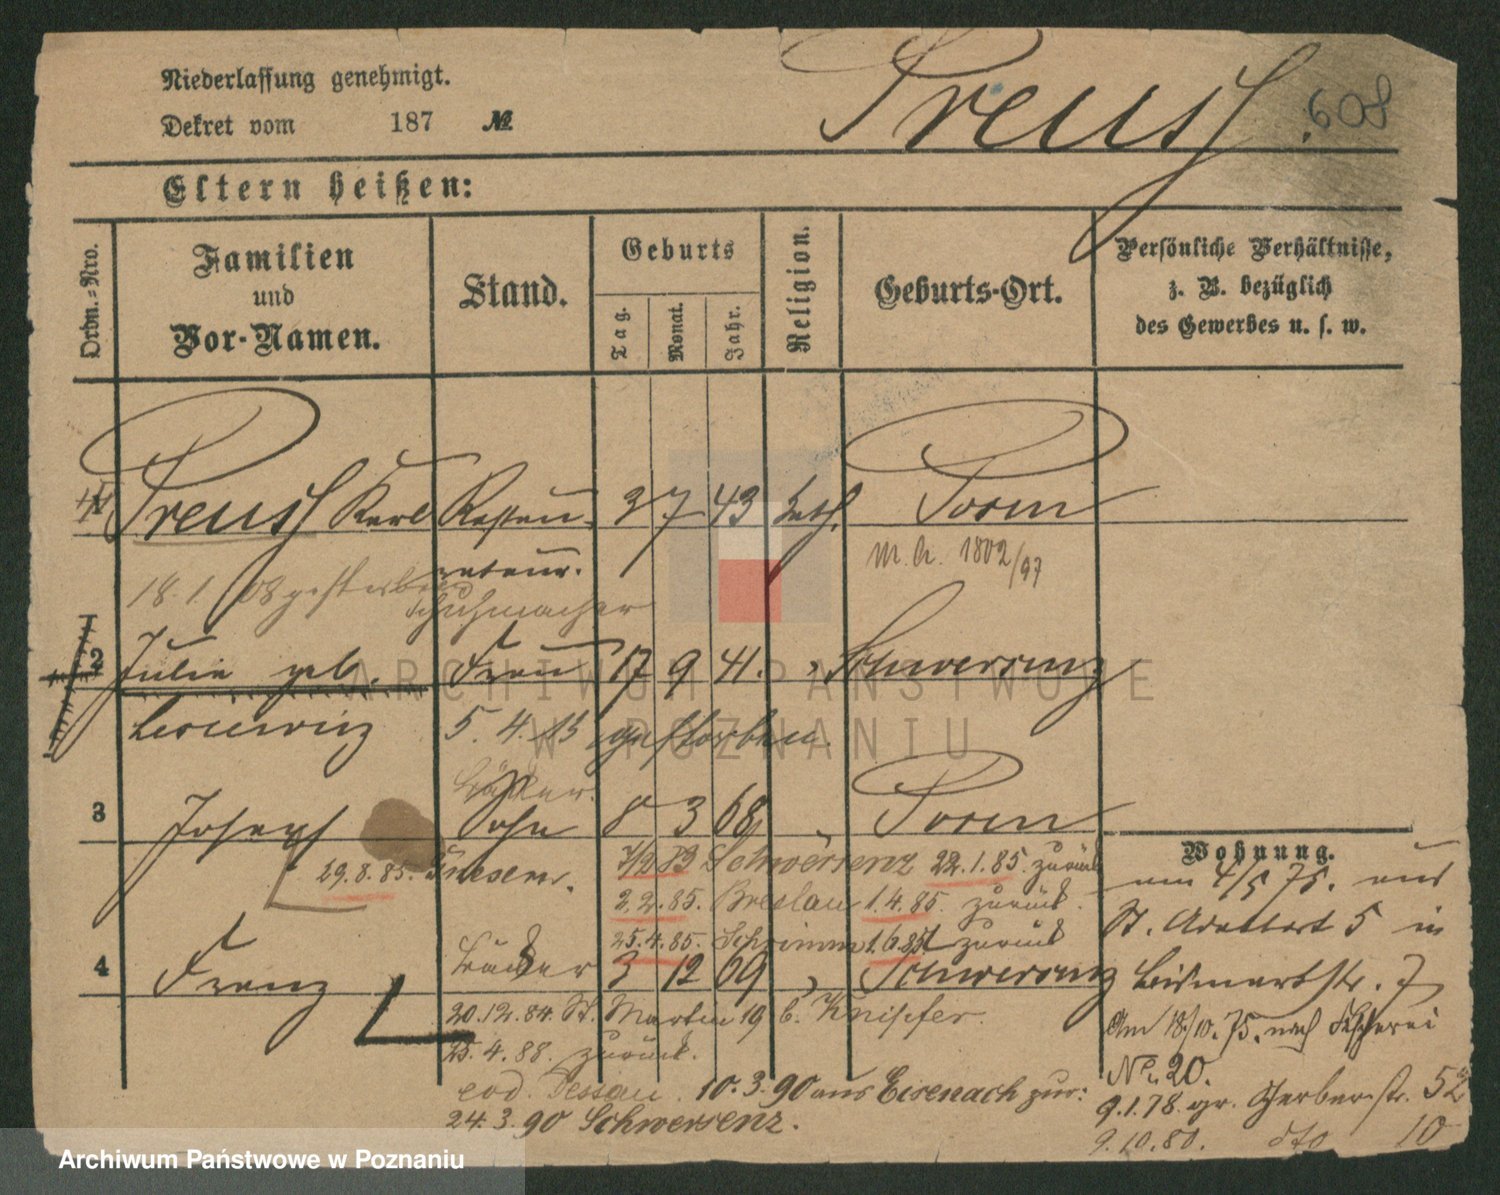 Niederlassung genehmigt.
Dekret vom 187 №
Preuss 608
Eltern heißen:
Ordn.=Nro.
Familien
und
Vor-Namen.
Stand.
Geburts
Tag.
Monat.
Jahr.
Religion.
Geburts-Ort.
Persönliche Verhältnisse,
z. B. bezüglich
des Gewerbes u. s. w.
1 Preuss Karl Restau- 3 7 43 kath. Posen
rateur. M. A. 1802/97
18. 1. 08 gestorben Schuhmacher
2 Julie geb. Frau 17 9 41. " Schwersenz
5. 4. 15 gestorben.
3 Joseph Sohn 8 3 68 " Posen
Wohnung.
29.8.85. Gnesen. 22.1.85. zurück
am 4/5 75. aus
2.2.85. Breslau 1.4.85. zurück.
St. Adalbert 5 in
25.4.85. Schrimm zurück
4 Franz 3 12 69 " Schwersenz
Bismarkstr. 7
20.12.84. St. Martin 19 b. Knipfer.
Am 18/10. 75. nach Fischerei
25. 4. 88. zurück.
No. 20.
Dessau. 10.3.90 aus Eisenach zur:
9.1.78. gr. Gerberstr. 52
24.3.90 Schwersenz.
9.10.80. dto 10
ARCHIWUM PAŃSTWOWE
W POZNANIU
Archiwum Państwowe w Poznaniu